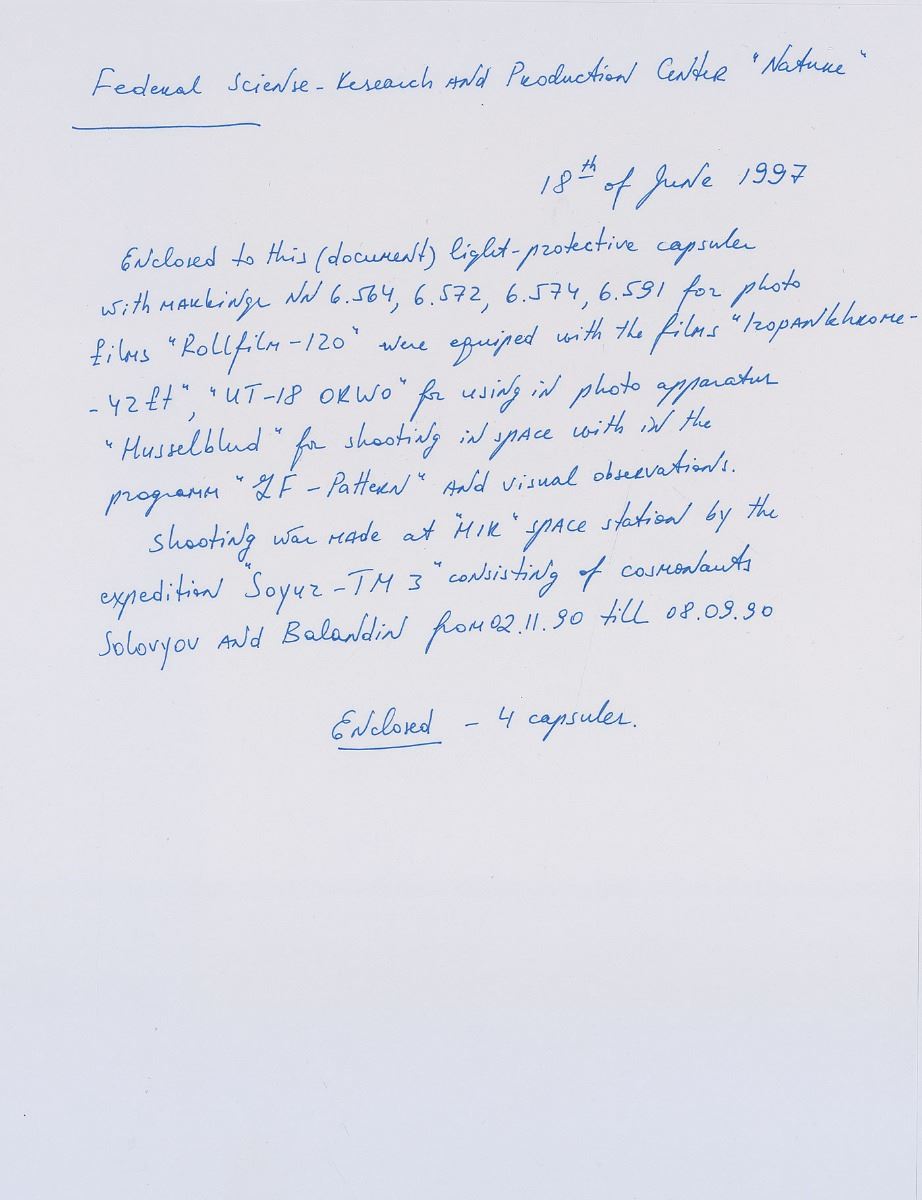 Federal Sciense-Research and Production Center "Nature"
18th of June 1997
Enclosed to this (document) light-protective capsules
with markings NN 6.564, 6.572, 6.574, 6.591 for photo
films "Rollfilm-120" were equiped with the films "Izopankhrome-
-42ft", "UT-18 ORWO" for using in photo apparatus
"Husselblud" for shooting in space with in the
programm "ZF-Pattern" and visual observations.
Shooting was made at "MIR" space station by the
expedition "Soyuz-TM 3" consisting of cosmonauts
Solovyov and Balandin from 02.11.90 till 08.09.90
Enclosed - 4 capsules.